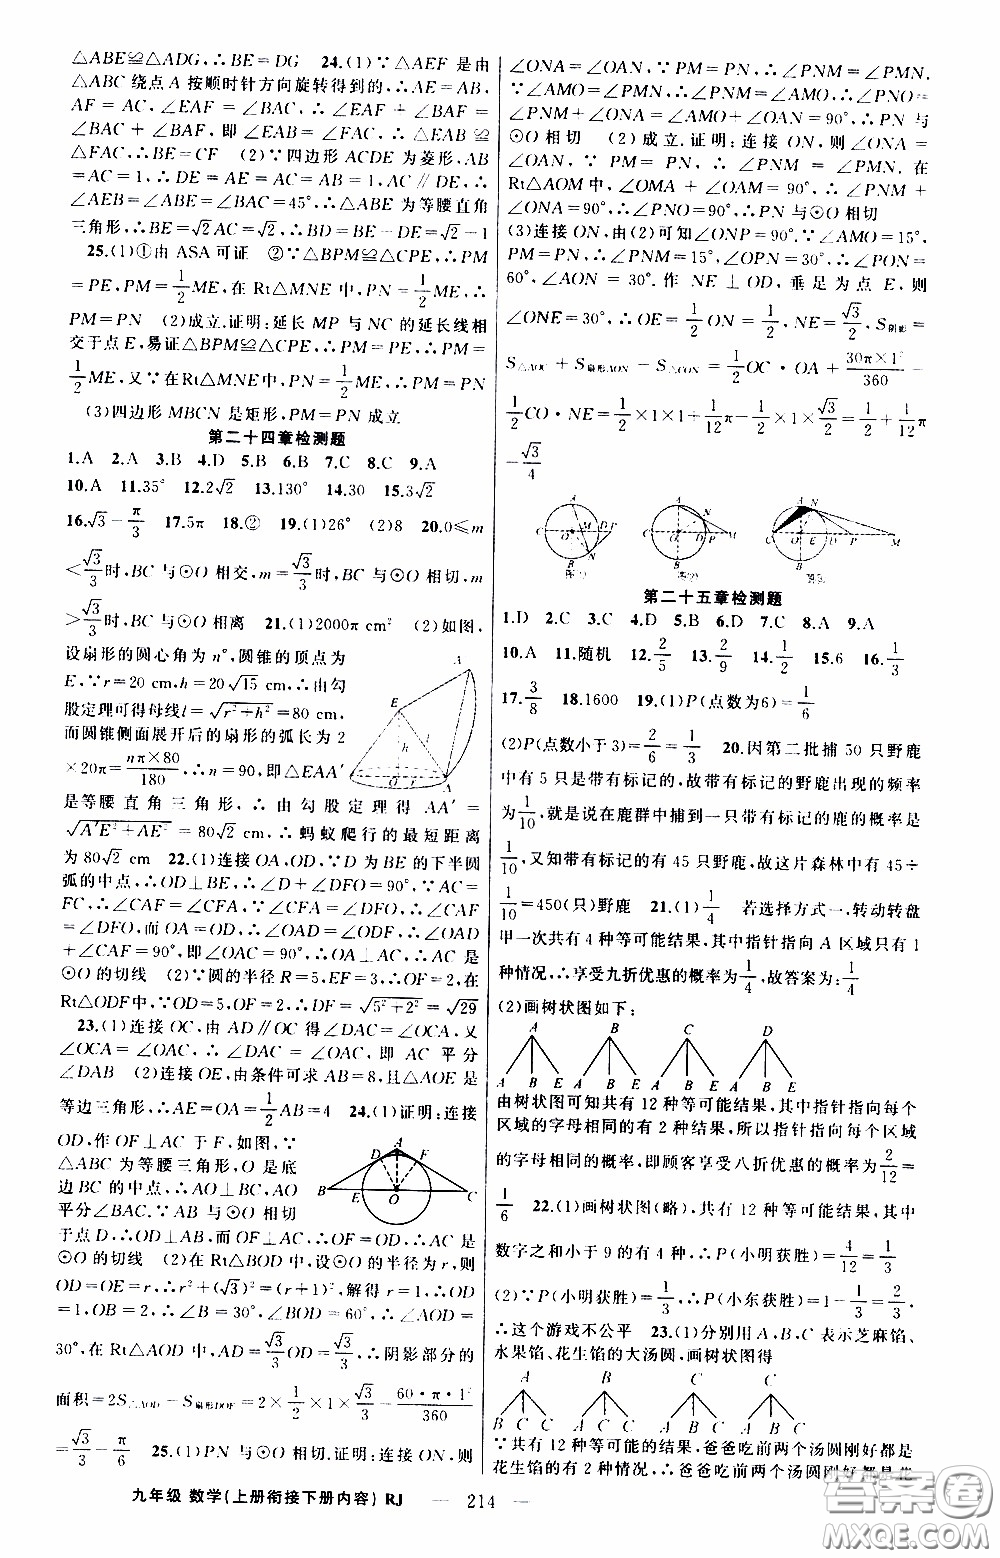 △ABE≌△ADG,∴BE=DG　24.(1)∵△AEF 是由
△ABC 绕点A 按顺时针方向旋转得到的,∴AE=AB,
AF=AC,∠EAF=∠BAC,∴∠EAF+∠BAF=
∠BAC+∠BAF,即∠EAB=∠FAC,∴△EAB≌
△FAC,∴BE=CF　(2)∵四边形ACDE 为菱形,AB
=AC=1,∴DE=AE=AC=AB=1,AC∥DE,∴
∠AEB=∠ABE,∠ABE=∠BAC=45°,∴△ABE 为等腰直角
三角形,∴BE=√2AC=√2,∴BD=BE-DE=√2-1
25.(1)①由 ASA 可证　②∵△BPM≌△CPE,∴PM
=PE,PM=1/2ME,在Rt△MNE 中,PN=1/2ME,∴
PM=PN　(2)成立.证明:延长 MP 与 NC 的延长线相
交于点E,易证△BPM≌△CPE,∴PM=PE,∴PM=
1/2ME,又∵在Rt△MNE中,PN=1/2ME,∴PM=PN
(3)四边形 MBCN 是矩形,PM=PN 成立
第二十四章检测题
1.A　2.A　3.B　4.D　5.B　6.B　7.C　8.C　9.A
10.A　11.35°　12.2√2　13.130°　14.30　15.3√2
16.√3-π/3　17.5π　18.②　19.(1)26°　(2)8　20.0≤m
<√3/3时,BC 与⊙O 相交,m=√3/3时,BC 与⊙O 相切,m
>√3/3时,BC 与⊙O 相离　21.(1)2000π cm²　(2)如图,
设扇形的圆心角为 n°,圆锥的顶点为
E,∵r=20 cm,h=20√15 cm,∴由勾
股定理可得母线l=√(r²+h²)=80 cm,
而圆锥侧面展开后的扇形的弧长为 2
×20π=nπ×80/180,∴n=90,即△EAA′
是等腰直角三角形,∴由勾股定理得 AA′=
√(A′E²+AE²)=80√2 cm,∴蚂蚁爬行的最短距离
为80√2 cm　22.(1)连接OA,OD,∵D 为BE 的下半圆
弧的中点,∴OD⊥BE,∴∠D+∠DFO=90°,∵AC=
FC,∴∠CAF=∠CFA,∵∠CFA=∠DFO,∴∠CAF
=∠DFO,而OA=OD,∴∠OAD=∠ODF,∴∠OAD
+∠CAF=90°,即∠OAC=90°,∴OA⊥AC,∴AC 是
⊙O 的切线　(2)∵圆的半径R=5,EF=3,∴OF=2,在
Rt△ODF 中,∵OD=5,OF=2,∴DF=√(5²+2²)=√29
23.(1)连接 OC,由 AD∥OC 得∠DAC=∠OCA,又
∠OCA=∠OAC,∴∠DAC=∠OAC,即 AC 平分
∠DAB　(2)连接OE,由条件可求AB=8,且△AOE 是
等边三角形,∴AE=OA=1/2AB=4　24.(1)证明:连接
OD,作 OF⊥AC 于 F,如图,∵
△ABC 为等腰三角形,O 是底
边BC 的中点,∴AO⊥BC,AO
平分∠BAC.∵AB 与⊙O 相切
于点D,∴OD⊥AB,而 OF⊥AC,∴OF=OD,∴AC 是
⊙O 的切线　(2)在Rt△BOD 中,设⊙O 的半径为r,则
OD=OE=r,∴r²+(√3)²=(r+1)²,解得 r=1,∴OD
=1,OB=2,∴∠B=30°,∠BOD=60°,∴∠AOD=
30°,在 Rt△AOD 中,AD=√3/3OD=√3/3,∴阴影部分的
面积=2S△AOD-S扇形DOF=2×1/2×1×√3/3-60·π·1²/360
=√3/3-π/6　25.(1)PN 与⊙O 相切.证明:连接ON,则
∠ONA=∠OAN,∵PM=PN,∴∠PNM=∠PMN.
∵∠AMO=∠PMN,∴∠PNM=∠AMO,∴∠PNO=
∠PNM+∠ONA=∠AMO+∠OAN=90°,∴PN 与
⊙O 相切　(2)成立.证明:连接 ON,则∠ONA=
∠OAN,∵PM=PN,∴∠PNM=∠PMN,在
Rt△AOM 中,∠OMA+∠OAM=90°,∴∠PNM+
∠ONA=90°,∴∠PNO=90°,∴PN 与⊙O 相切
(3)连接ON,由(2)可知∠ONP=90°,∵∠AMO=15°,
PM=PN,∴∠PNM=15°,∠OPN=30°,∴∠PON=
60°,∠AON=30°.作 NE⊥OD,垂足为点 E,则
∠ONE=30°,∴OE=1/2ON=1/2,NE=√3/2,S阴影=
S△AOC+S扇形AON-S△CON=1/2OC·OA+30π×1²/360-
1/2CO·NE=1/2×1×1+1/12π-1/2×1×√3/2=1/2+1/12π
-√3/4
A C M D O P N B 图①
A C O D P M N B 图②
A N C O E D P M B 图③
第二十五章检测题
1.D　2.C　3.C　4.D　5.B　6.D　7.C　8.A　9.A
10.A　11.随机　12.2/5　13.2/9　14.1/2　15.6　16.1/3
17.3/8　18.1600　19.(1)P(点数为6)=1/6
(2)P(点数小于3)=2/6=1/3　20.因第二批捕 50 只野鹿
中有 5 只是带有标记的,故带有标记的野鹿出现的频率
为1/10,就是说,在鹿群中捕到带有标记的鹿的概率是
1/10,又知带有标记的有 45 只野鹿,故这片森林中有45÷
1/10=450(只)野鹿　21.(1)1/4　若选择方式一,转动转盘
甲一次共有 4 种等可能结果,其中指针指向 A 区域只有 1
种情况,∴享受九折优惠的概率为1/4,故答案为:1/4
(2)画树状图如下:
A　B　C　D
A B E　A B E　A B E　A B E
由树状图可知共有 12 种等可能结果,其中指针指向每个
区域的字母相同的有 2 种结果,所以指针指向每个区域
的字母相同的概率,即顾客享受八折优惠的概率为2/12=
1/6　22.(1)画树状图(略),共有 12 种等可能结果,其中
数字之和小于 9 的有 4 种,∴P(小明获胜)=4/12=1/3
(2)∵P(小明获胜)=1/3,∴P(小东获胜)=1-1/3=2/3,
∴这个游戏不公平　23.(1)分别用A,B,C 表示芝麻馅、
水果馅、花生馅的大汤圆,画树状图得
A　B　C　C
B C C　A C C　A B C　A B C
∵共有 12 种等可能的结果,爸爸吃前两个汤圆刚好都是
花生馅的有 2 种情况,∴爸爸吃前两个汤圆刚好都是花
九年级 数学(上册衔接下册内容) RJ　— 214 —
答案圈
MXQE.COM